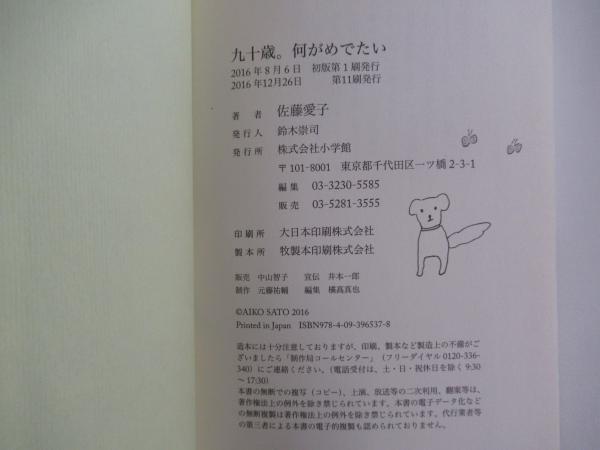 九十歳。何がめでたい
2016年8月6日 初版第1刷発行
2016年12月26日 第11刷発行
著者 佐藤愛子
発行人 鈴木崇司
発行所 株式会社小学館
〒101-8001 東京都千代田区一ツ橋2-3-1
編集 03-3230-5585
販売 03-5281-3555
印刷所 大日本印刷株式会社
製本所 牧製本印刷株式会社
販売 中山智子 宣伝 井本一郎
制作 元藤祐輔 編集 橘髙真也
©AIKO SATO 2016
Printed in Japan ISBN978-4-09-396537-8
造本には十分注意しておりますが、印刷、製本など製造上の不備がご
ざいましたら「制作局コールセンター」（フリーダイヤル0120-336-
340）にご連絡ください。（電話受付は、土・日・祝休日を除く9:30
～17:30）
本書の無断での複写（コピー）、上演、放送等の二次利用、翻案等は、
著作権法上の例外を除き禁じられています。本書の電子データ化など
の無断複製は著作権法上の例外を除き禁じられています。代行業者等
の第三者による本書の電子的複製も認められておりません。